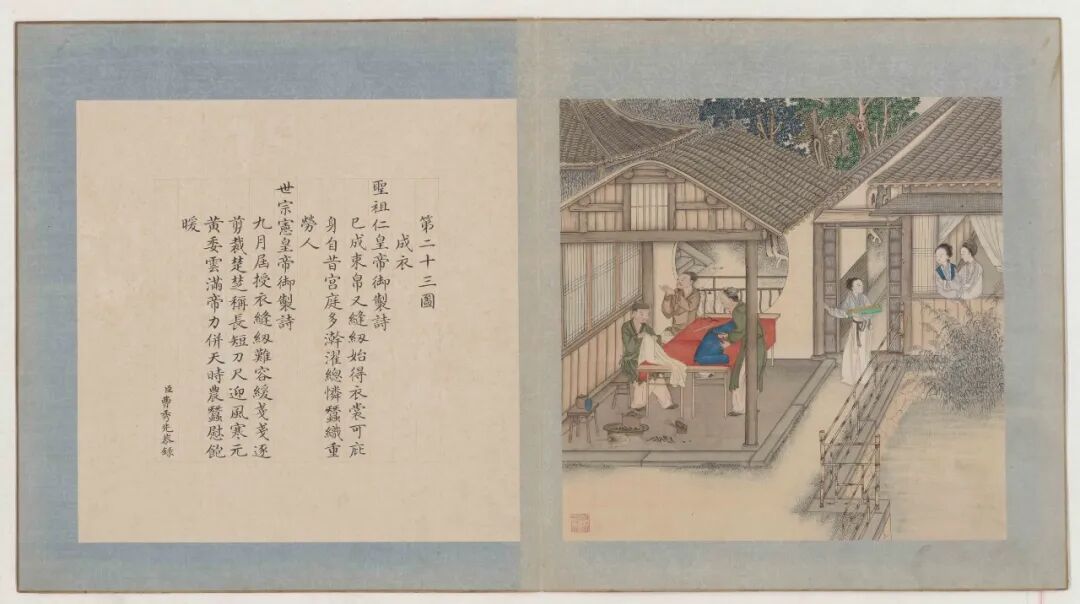 第二十三圖
成衣
聖祖仁皇帝御製詩
已成束帛又縫紉始得衣裳可庇
身自昔宫庭多澣濯總憐蠶織重
勞人
世宗憲皇帝御製詩
九月屆授衣縫紉難容緩戔戔逐
剪裁楚楚稱長短刀尺迎風寒元
黃委雲滿帝力併天時農蠶慰飽
暖
臣曹秀先恭錄